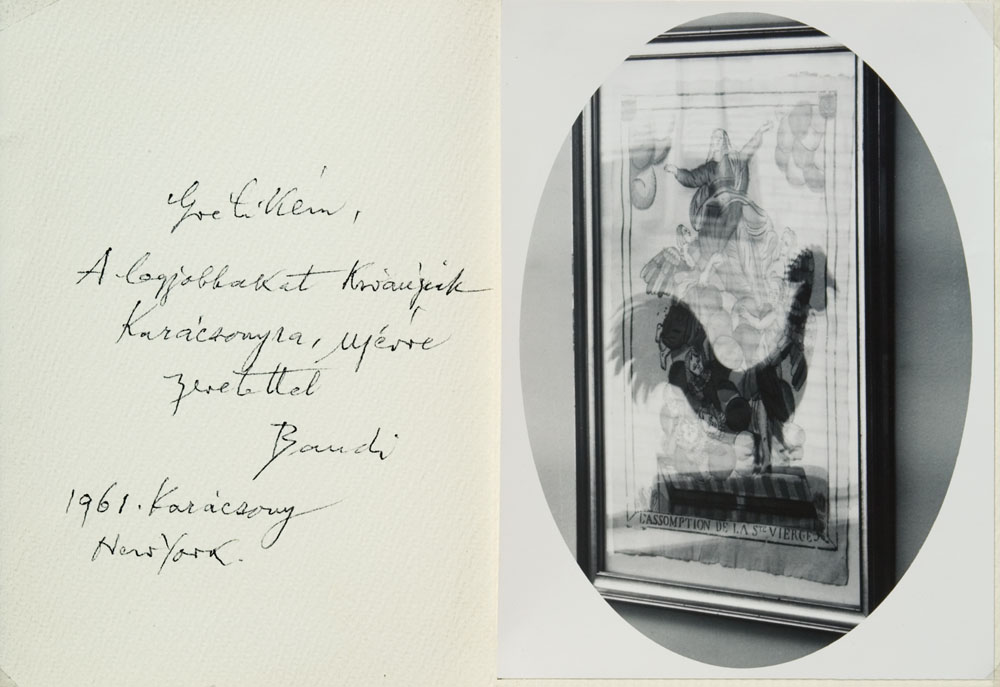 Gretikém,
A legjobbakat Kivánjuk
Karácsonyra, ujévre
szeretettel
Bandi
1961. Karácsony
New York.
L'ASSOMPTION DE LA STE VIERGE